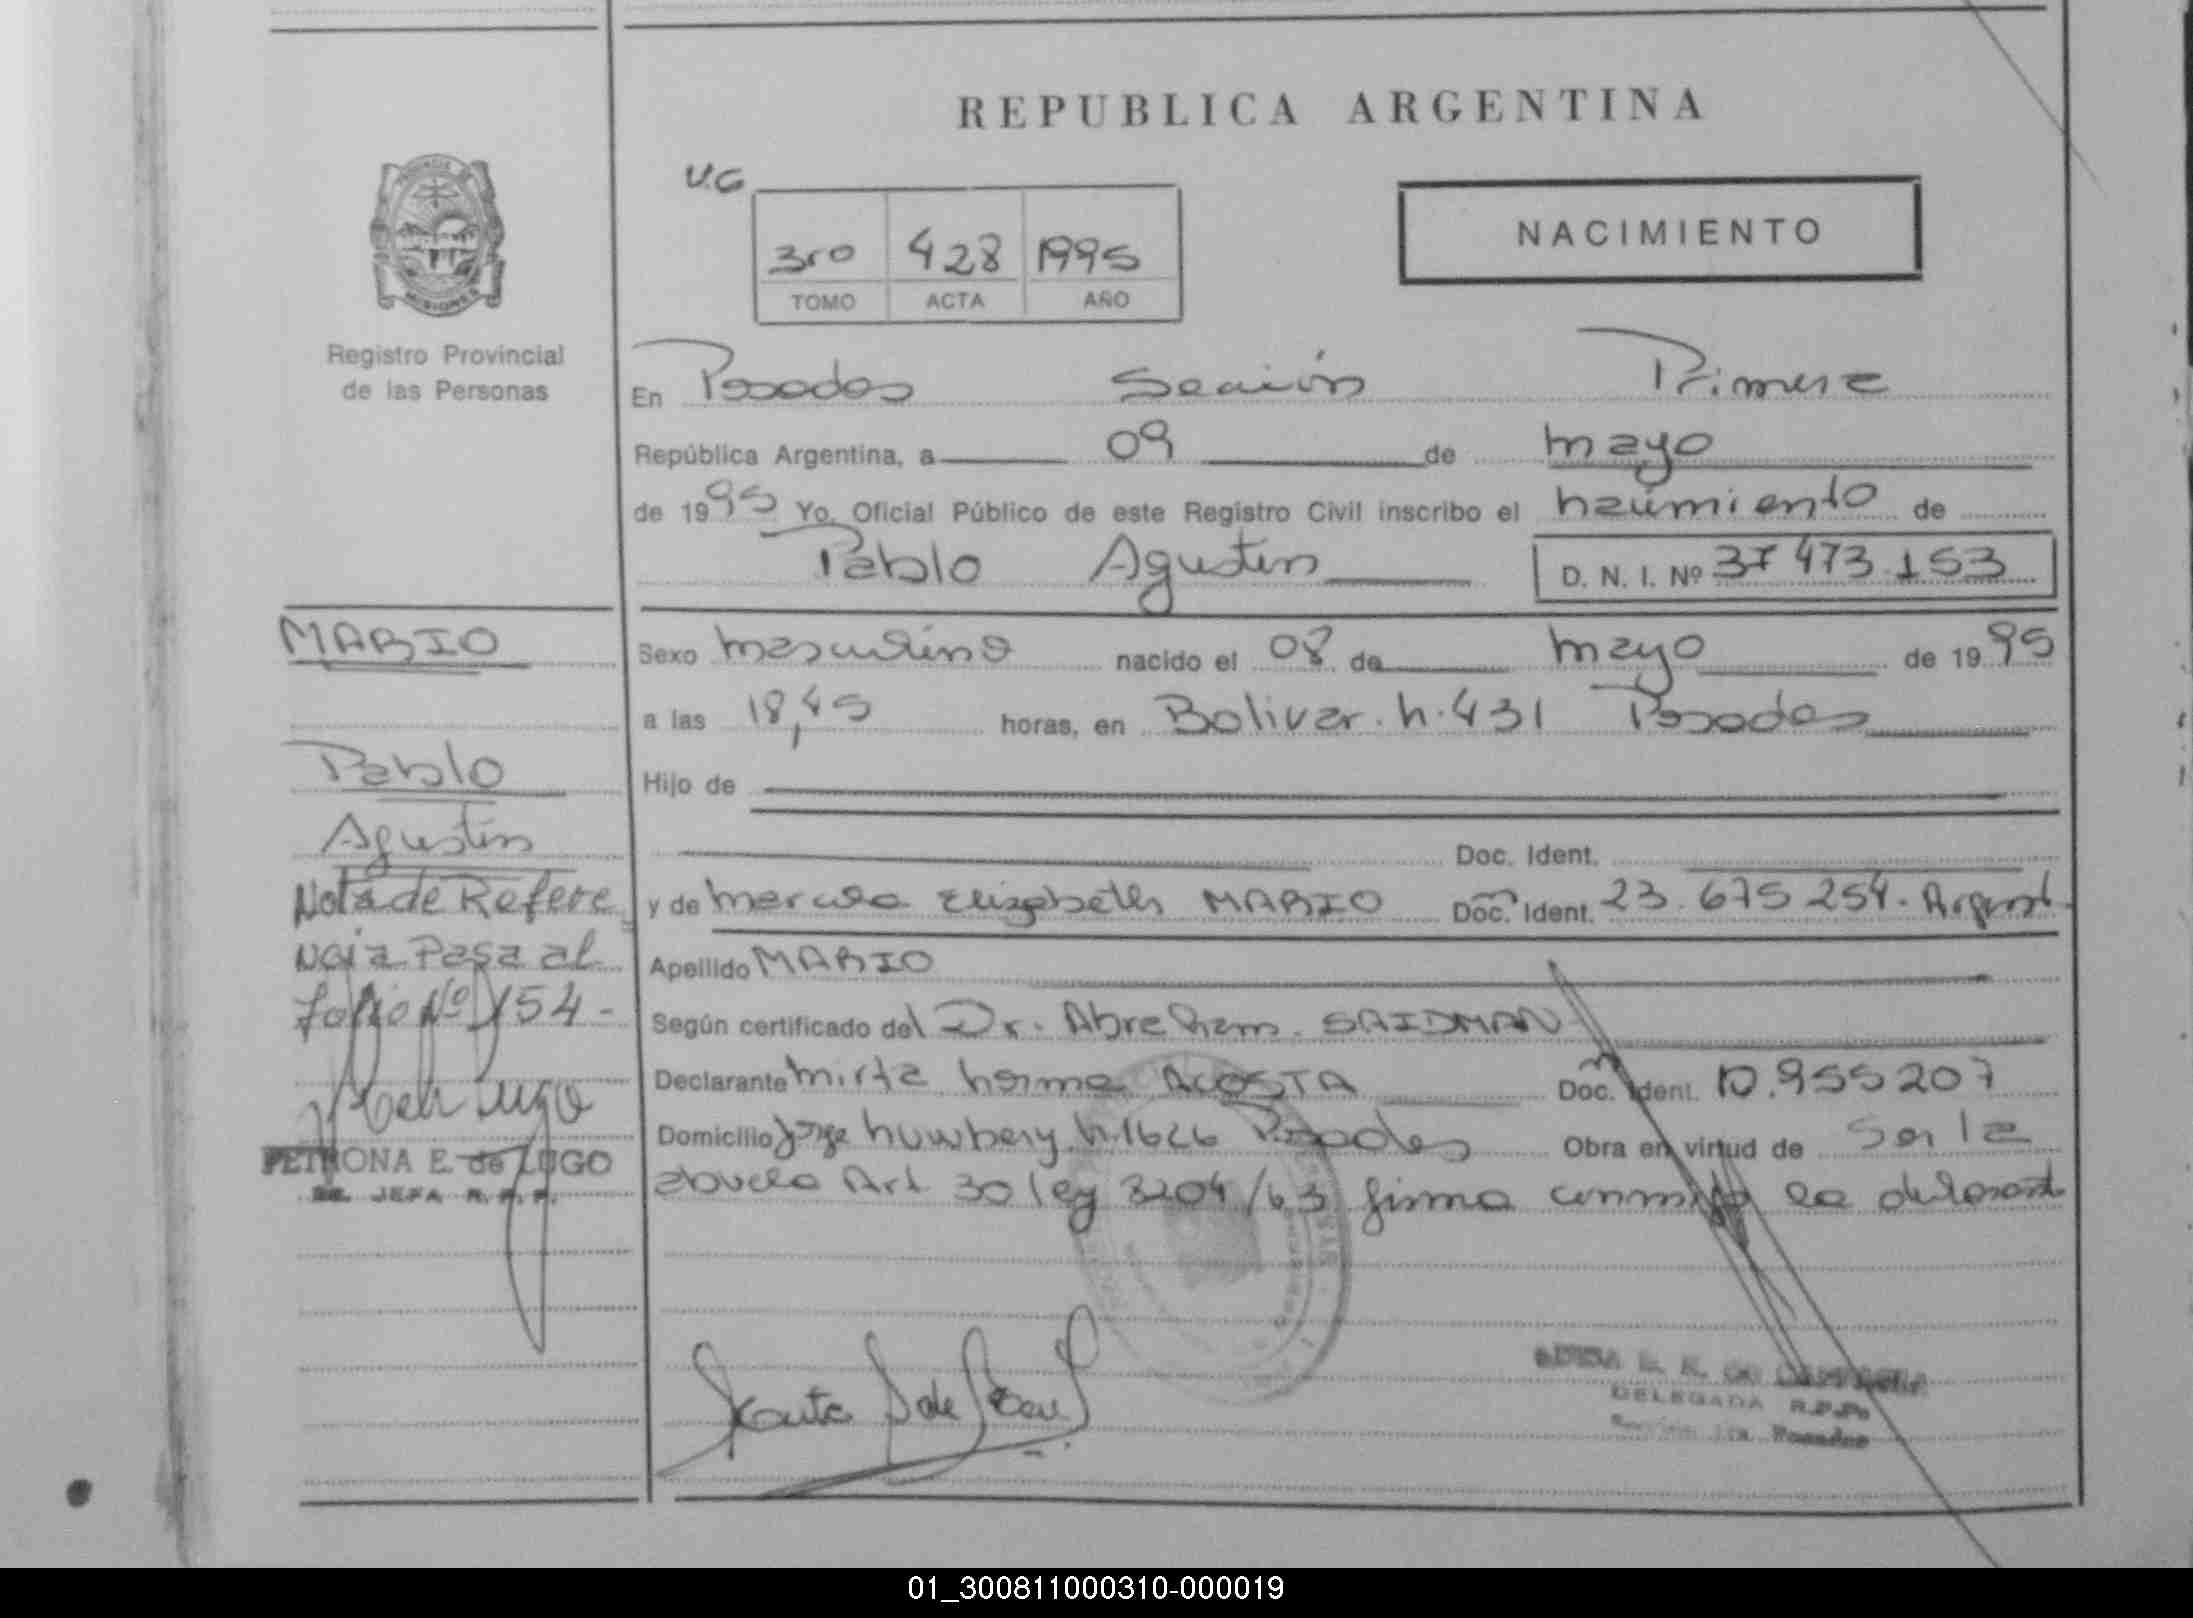 REPUBLICA ARGENTINA
U.G
3ro 428 1995
TOMO ACTA AÑO
NACIMIENTO
MISIONES
Registro Provincial
de las Personas
En Posadas Sección Primera
República Argentina, a 09 de mayo
de 1995 Yo, Oficial Público de este Registro Civil inscribo el nacimiento de
Pablo Agustin
D. N. I. Nº 37 473 153
MARIO
Pablo
Agustin
Nota de Refere
ncia Pasa al
folio Nº 154-
PETRONA E. de LUGO
JEFA R. P. P.
Sexo masculino nacido el 08 de mayo de 1995
a las 18,45 horas, en Bolivar. n. 431 Posadas
Hijo de
Doc. Ident.
y de Marcela Elizabeth MARIO Doc. Ident. 23.675 254. Argent
Apellido MARIO
Según certificado del Dr. Abraham. SAIDMAN
Declarante Mirta Norma ACOSTA Doc. Ident. 10.955207
Domicilio Jorge Newbery n. 1626 Posadas Obra en virtud de Ser la
abuela Art 30 ley 8204/63 firma conmigo la declarant
DELEGADA R.P.P.
Sección 1ra Posadas
01_300811000310-000019